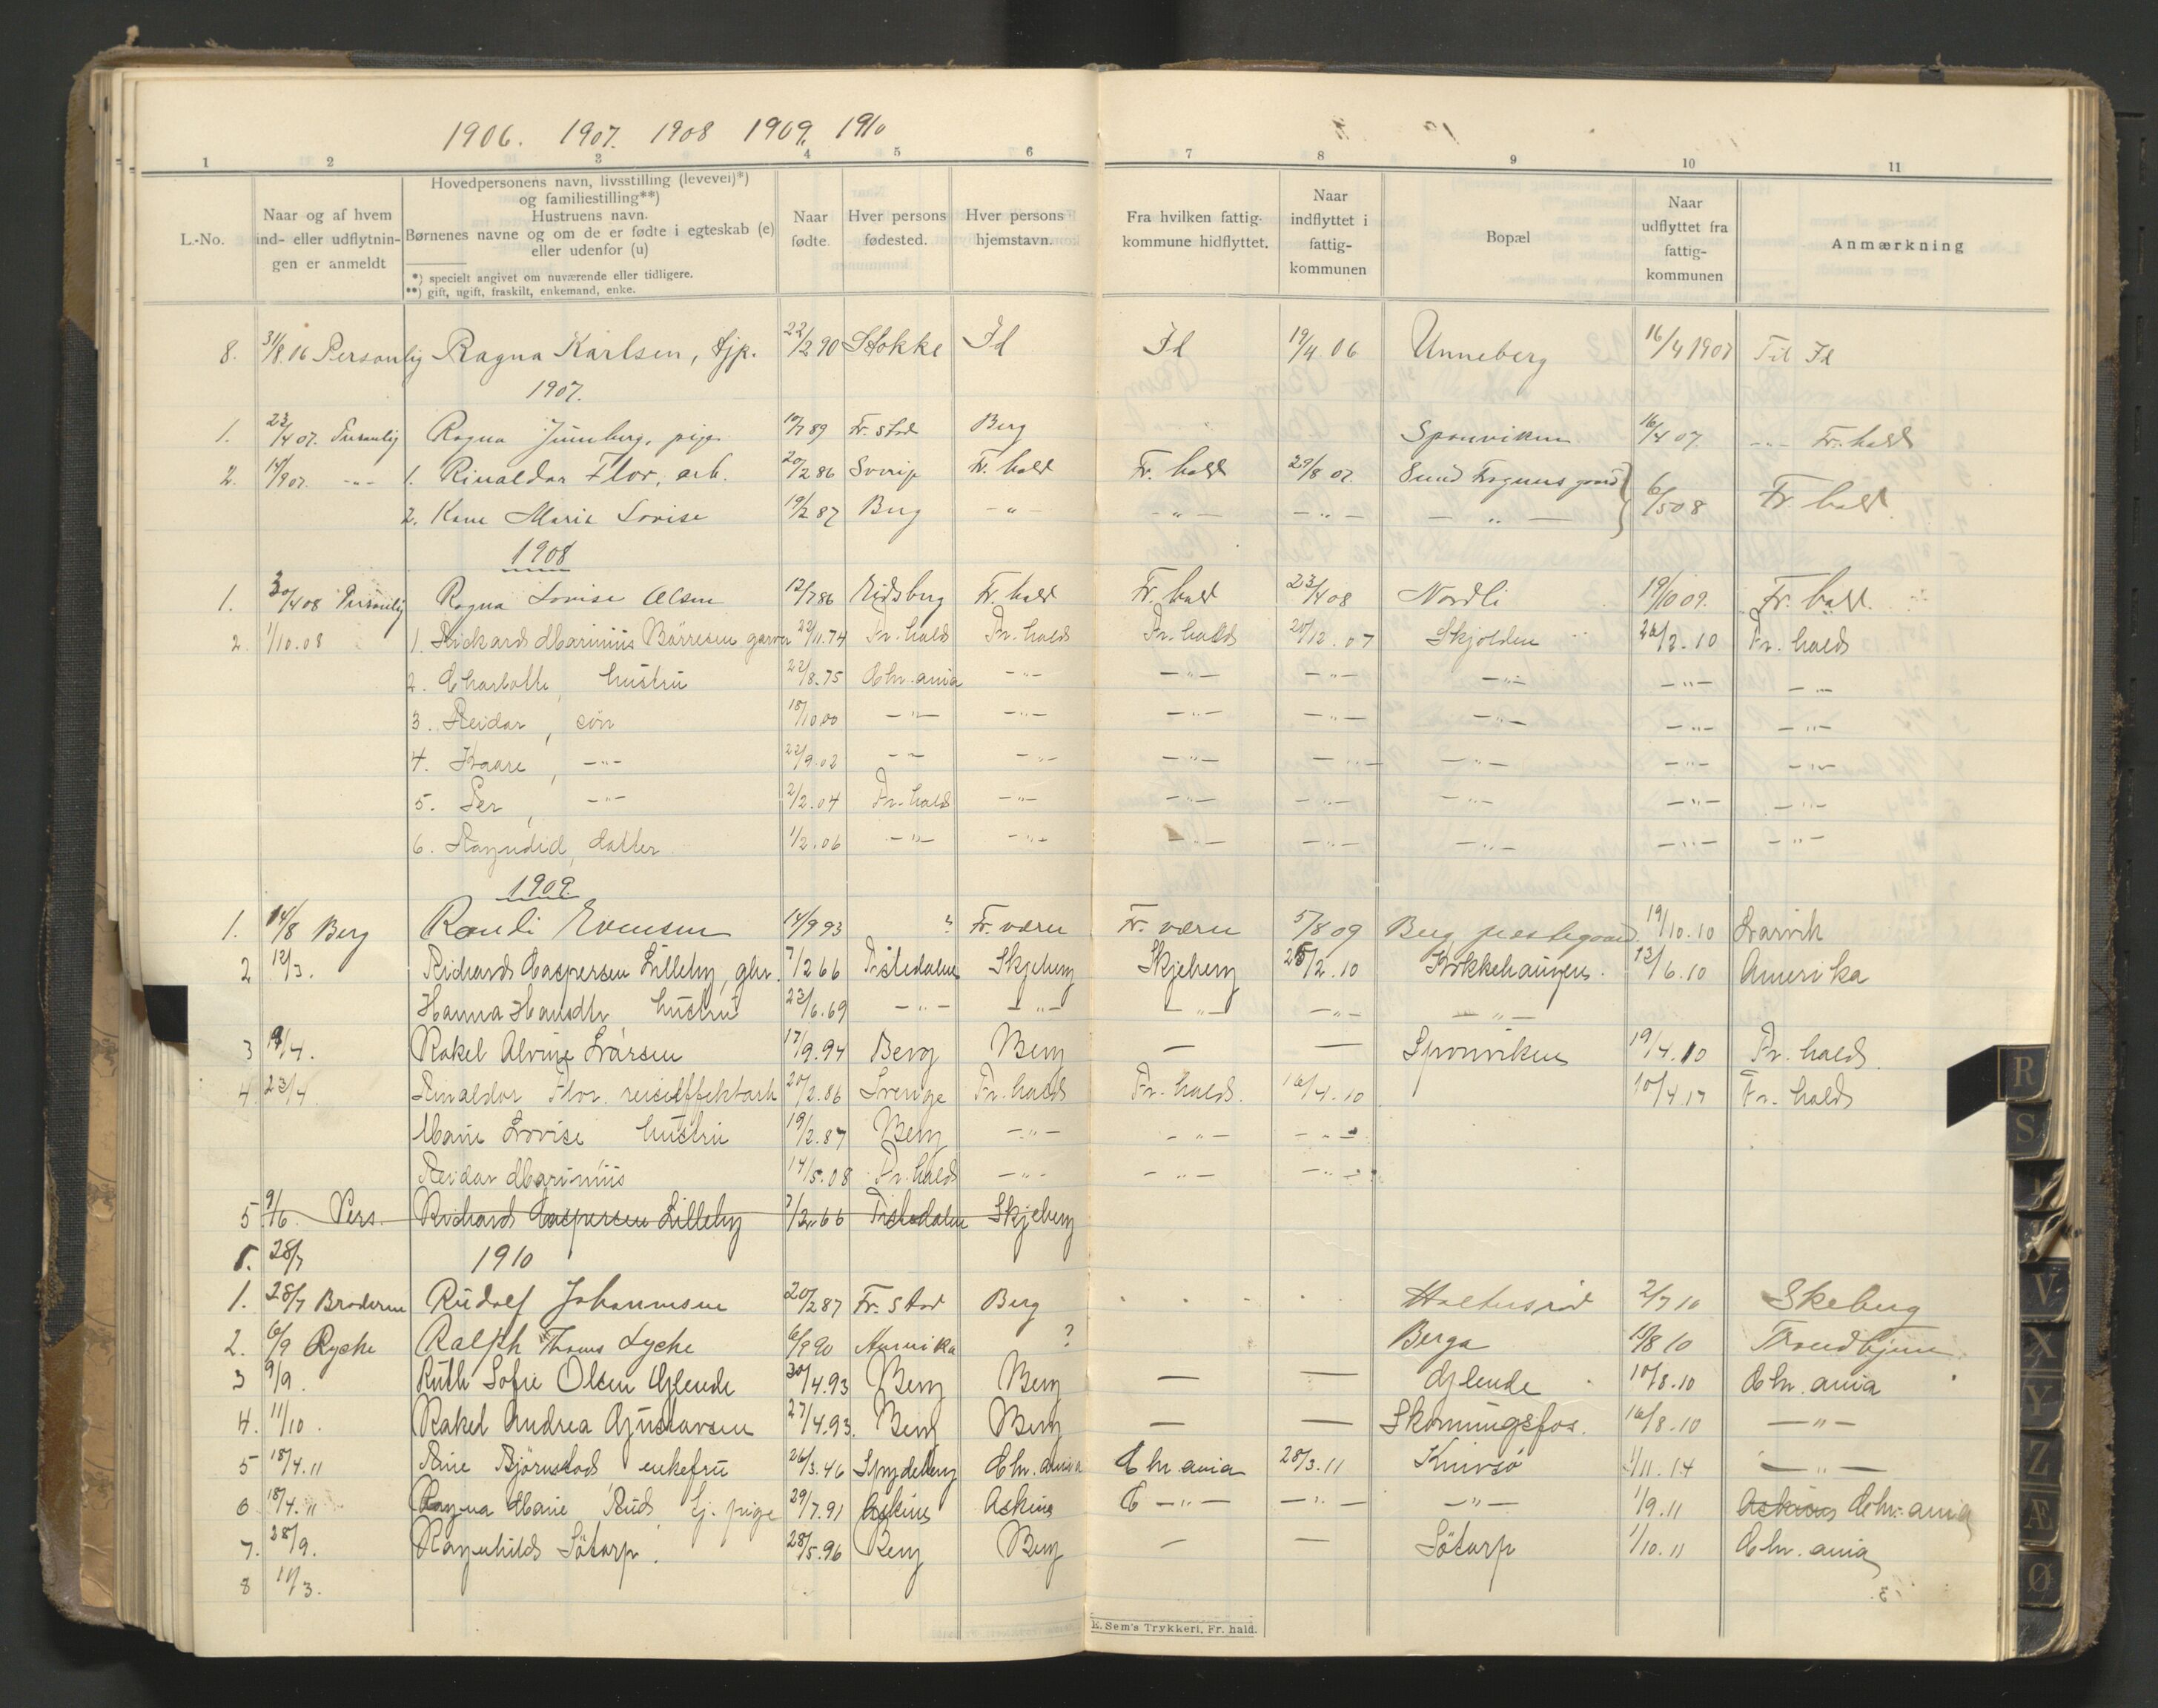 1906. 1907. 1908 1909. 1910
1 2 3 4 5 6 7 8 9 10 11
L.-No. | Naar og af hvem ind- eller udflytnin- gen er anmeldt | Hovedpersonens navn, livsstilling (levevei)*) og familiestilling**) Hustruens navn. Børnenes navne og om de er fødte i egteskab (e) eller udenfor (u) *) specielt angivet om nuværende eller tidligere. **) gift, ugift, fraskilt, enkemand, enke. | Naar fødte. | Hver persons fødested. | Hver persons hjemstavn. | Fra hvilken fattig- kommune hidflyttet. | Naar indflyttet i fattig- kommunen | Bopæl | Naar udflyttet fra fattig- kommunen | Anmærkning
8. 31/8.16 Personlig Ragna Karlsen, tjp. 22/2 90 Stokke Id Id 19/4 06 Unneberg 16/4 1907 Til Id
1907.
1. 23/4 07. Personlig Ragna pige 10/7 89 Fr. stad Berg Sponviken 16/4 07 -"- Fr. hald
2. 14/9 07. -"- 1. Rinaldar Flor, arb. 20/2 86 Sverig Fr. hald Fr. hald 29/8 07 Sund 6/5 08 Fr. hald
2. Kone Marie Lovise 19/2 87 Berg -"- -"- -"- -"-
1908
1. 30/4 08 Personlig Ragna Lovise Olsen 12/7 86 Eidsberg Fr. hald Fr. hald 23/4 08 Nordli 19/10 09. Fr. hald.
2. 1/10.08 1. Rickard Marinius Börresen garver 22/11.74 Fr. hald Fr. hald Fr. hald 20/12.07 Skjolden 26/2.10 Fr. hald
2. Charlotte, hustru 22/8.75 Chr. ania -"- -"- -"- -"- -"- -"-
3. Reidar, sön 18/10 00 -"- -"- -"- -"- -"- -"- -"-
4. Kaare, -"- 22/9.02 -"- -"- -"- -"- -"- -"- -"-
5. Per, -"- 2/2.04 Fr. hald -"- -"- -"- -"- -"- -"-
6. Ragndid, datter 1/2.06 -"- -"- -"- -"- -"- -"- -"-
1909
1. 14/8 Berg Randi Evensen 14/9 93 ? Fr. værn Fr. værn 5/8 09 Berg prestegaard 19/10.10 Larvik
2 12/3. Richard Caspersen Lilleby, gbr. 7/2 66 Tistedalen Skjeberg Skjeberg 25/2.10 Kokkehaugen. 12/6.10 Amerika
Hanna Hansdtr hustru 23/6.69 -"- -"- -"- -"- -"-
3 19/4. Rakel Alvine Larsen 17/9.94 Berg Berg — — Sponviken 19/4.10 Fr. hald.
4 23/4 Rinaldar Flor. reiseeffektarb 20/2.86 Sverige Fr. hald Fr. hald. 16/4.10 10/4.17 Fr. hald
Marie Lovise hustru 19/2.87 Berg -"- -"- -"-
Reidar Marinius 14/5.08 Fr. hald -"- -"- -"-
5 9/6. Pers. Richard Caspersen Lilleby 7/2.66 Tistedalen Skjeberg
1. 28/7 1910
1. 28/7 Broderen Rudolf Johannesen 20/2 87 Fr. stad Berg 2/7 10 Skeberg
2. 6/9 Lycke Ralph Thoms Lycke 6/9 90 Amerika ? Berga 19/8 10 Trondhjem.
3 9/9. Ruth Sofie Olsen Gjlende 30/4.93 Berg Berg — — Gjlende 10/8.10 Chr. ania
4. 11/10. Rakel Andrea Gustavsen 27/4.93. Berg Berg — — Skonningsfos. 16/8.10 -"-
5 18/4.11 Rine Björnstad enkefru 26/3.46 Spydeberg Chr. ania Chr. ania 28/3.11 Knivsö 1/11.14 -"-
6 18/4.11 Ragna Marie Rud, tj. pige 29/7.91 Askim Askim C -"- -"- -"- 1/9.11 Askim Chr. ania
7. 28/9. Ragnhild Sötorp. 28/5.96 Berg Berg — — Sötorp 1/10.11 Chr. ania
8 11/3.
E. Sem's Trykkeri, Fr. hald.
R
S
V
X
Y
Z
Æ
Ø